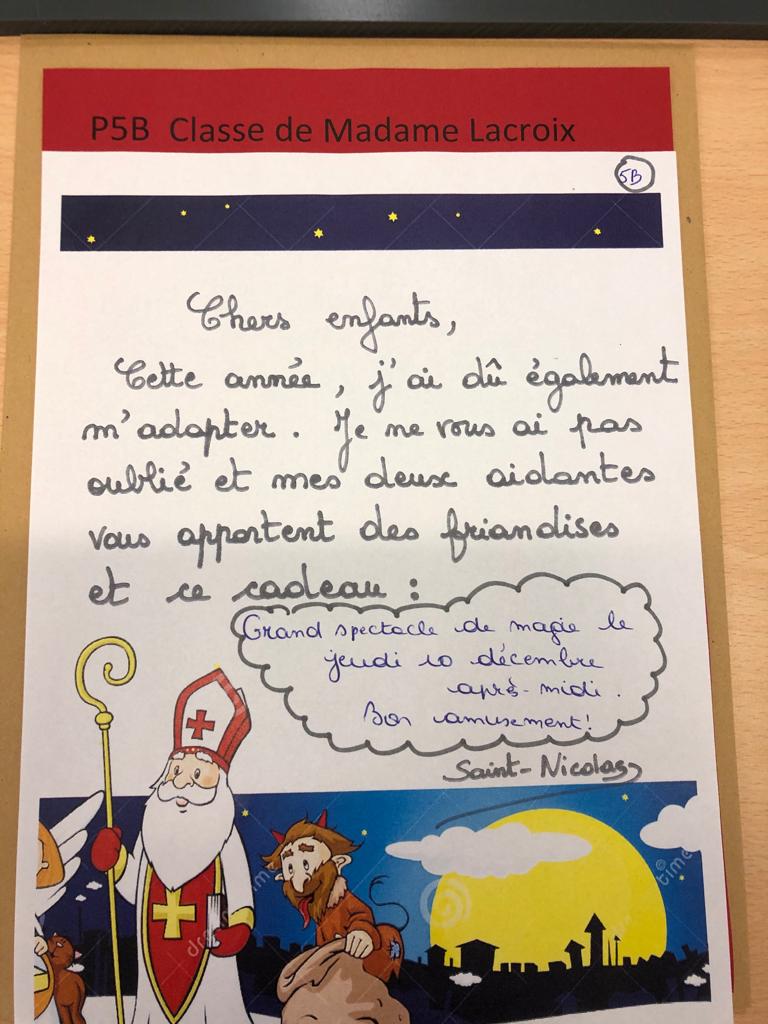 P5B Classe de Madame Lacroix
5B
Chers enfants,
Cette année, j'ai dû également
m'adapter. Je ne vous ai pas
oublié et mes deux aidantes
vous apportent des friandises
et ce cadeau :
Grand spectacle de magie le
jeudi 10 décembre
après-midi.
Bon amusement!
Saint-Nicolas